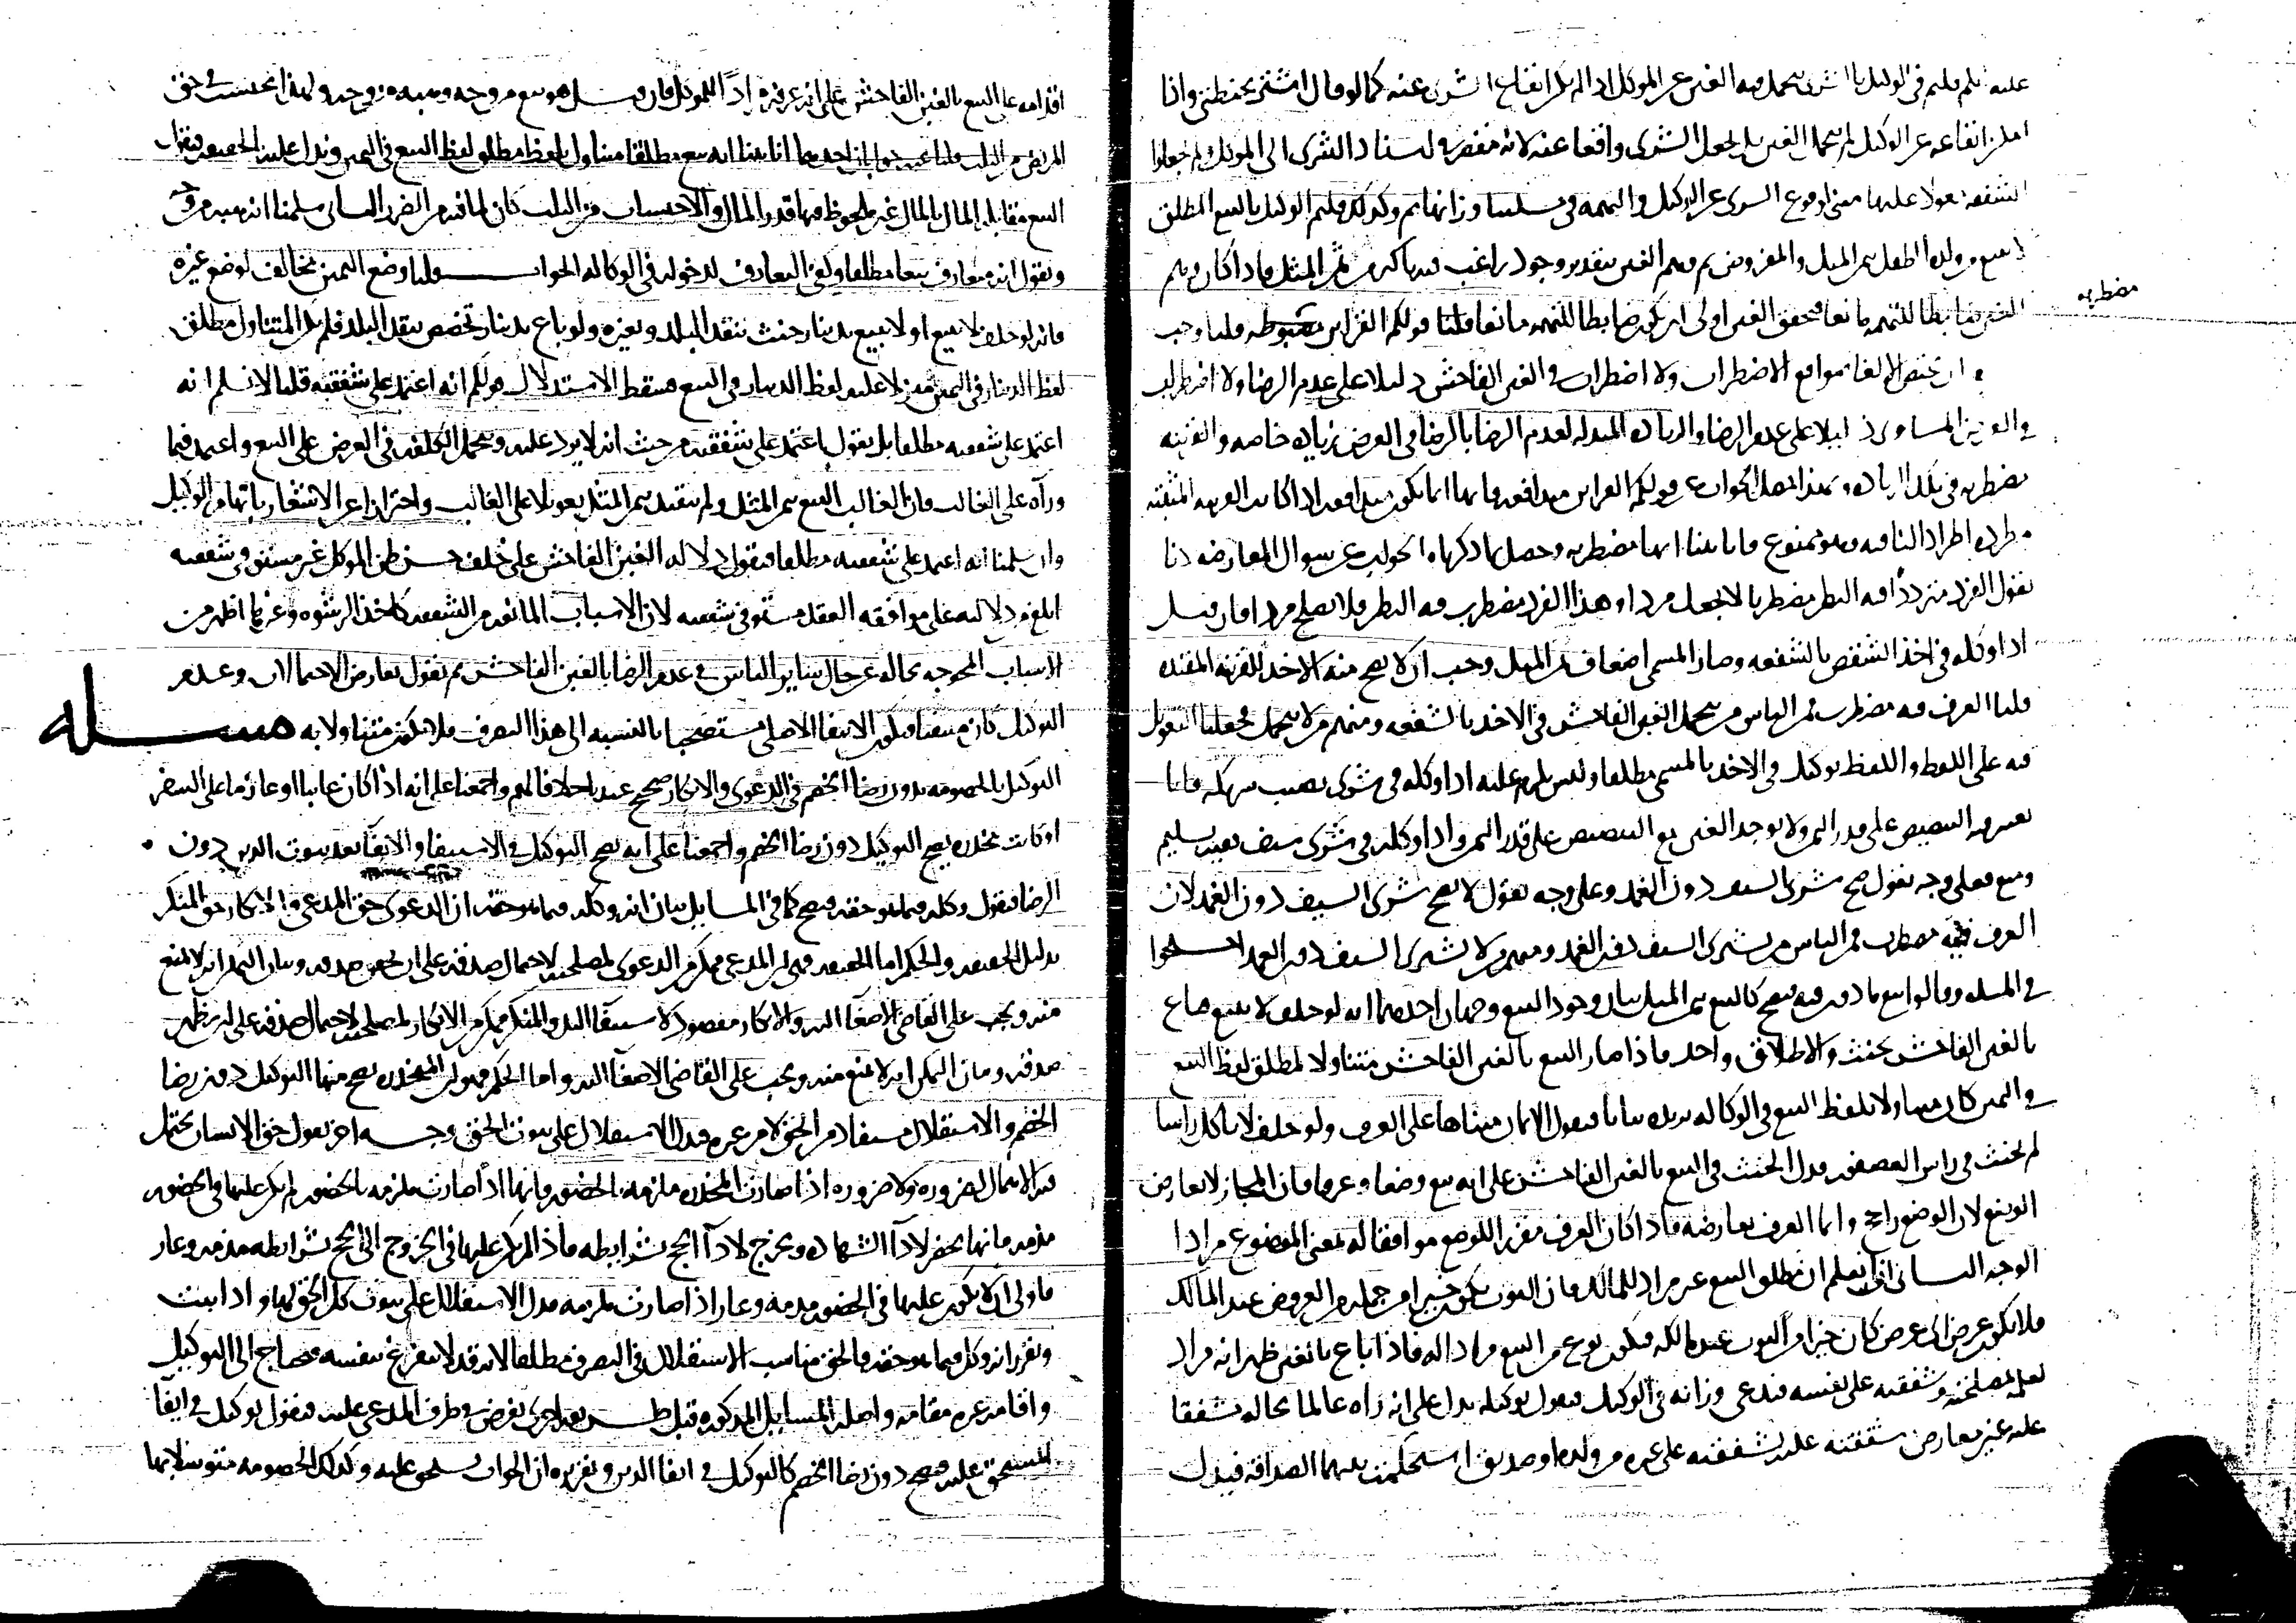 عليه فلم قلتم في الوكيل بالشرى يتحمل فيه الغبن عن الموكل اذا لم يكن ايقاع الشرى عنه كما لو قال اشتر بحنطتي واذا
امكن ايقاعه عن الوكيل لم يتحمل الغبن بل يجعل الشرى واقعا عنه لانه مفتقر في اسناد الشرى الى الموكل
الشفقة تعولا عليها وقوع الشرى عن الوكيل والتهمة في مسلتنا وزانها ثم وكذلك قلتم الوكيل بالبيع المطلق
لا يبيع من ولده الطفل بثمن المثل بتقدير وجود راغب فيها اكثر من ثمن المثل فاذا كان وهم
الغبن ضابطا للتهمة مانعا فتحقق الغبن اولى ان يكون ضابطا للتهمة مانعا قلنا قولكم القراين مضبوطة قلنا وجب
مضطربه
ان تختص الالغا بمواقع الاضطراب ولا اضطراب في الغبن الفاحش دليلا على عدم الرضا ولا اضطراب
دليلا على عدم الرضا والزيادة المبدلة لعدم الرضا بالرضا في العرض زيادة خاصة والقرينة
مضطربة في تلك الزيادة وبهذا يحصل الجواب عن قولكم القراين متدافعة فانها انما تكون متدافعة اذا كانت القرينة المثبتة
مطردة اطراد النافية وهو ممنوع فانا بينا انها مضطربة وحصل بما ذكرناه الجواب عن سوال المعارضة لانا
نقول الفرد مترددا فيه النظر مضطربا لا يجعل مردا وهذا الفرد مضطرب فيه النظر فلا يصلح مردا فان قيل
اذا وكله في اخذ الشقص بالشفعة وصار المسمى اضعاف ثمن المثل وجب ان لا يصح منه الاخذ للقرينة المقيدة
قلنا العرف فيه مضطرب فمن الناس من يتحمل الغبن الفاحش في الاخذ بالشفعة ومنهم من لا يتحمل فجعلنا التعويل
فيه على اللفظ واللفظ توكيل في الاخذ بالمسمى مطلقا وليس يلزم عليه اذا وكله في شرى نصيب شريكه فانا
نعتبر فيه التنصيص على قدر الثمن ولا يوجد الغبن مع التنصيص على قدر الثمن واذا وكله في شرى سيف بعينه يسلم
ومنع فعلى وجه نقول صح شرى السيف دون الغمد وعلى وجه نقول لا يصح شرى السيف دون الغمد لان
العرف فيه مضطرب فمن الناس من يشترى السيف دون الغمد ومنهم من لا يشترى السيف دون الغمد
في المسلة وقالوا بيع ماذون فيه فيصح كالبيع بثمن المثل بيان وجود البيع وجهان احدهما انه لو حلف لا يبيع فباع
بالغبن الفاحش يحنث والاطلاق واحد فاذا صار البيع بالغبن الفاحش متناولا لمطلق لفظ البيع
في اليمين كان متناولا بلفظ البيع في الوكالة يزيده بيانا فنقول الايمان مبناها على العرف ولو حلف لا ياكل راسا
لم يحنث في راس العصفور فدل الحنث في البيع بالغبن الفاحش على انه بيع وضعا وعرفا فان المجاز لا يعارض
الوضع لان الوضع راجح وانما العرف يعارضه فاذا كان العرف مقررا للوضع موافقا له بمعنى الموضوع مرادا
الوجه الثاني انا نعلم ان مطلق البيع غير مراد للمالك فان الثوب يكون خيرا من جملة من العروض عند المالك
فلا يكون عرض اي عرض كان خيرا من الثوب عند مالكه فيكون نوع من البيع مرادا له فاذا باع بالغبن ظهر انه مراد
لعلمه بمصلحته وشفقته على نفسه فندعي وزانه في الوكيل فنقول توكيله يدل على انه رآه عالما بحاله شفقا
عليه غير معارض شفقته عليه لشفقته على غيره من ولده او صديق استحكمت بينهما الصداقة فيدل
اقدامه على البيع بالغبن الفاحش على انه عرفه مرادا للموكل فان قيل هو بيع من وجه وهبة من وجه ولهذا يحتسب في حق
المريض من الثلث قلنا عنه جوابان احدهما انا بينا انه بيع مطلقا متناول بلفظ مطلق لفظ البيع في اليمين ويدل عليه الحقيقة فنقول
البيع مقابلة المال بالمال غير ملحوظ فيها قدر المال والاحتساب من الثلث كان لما فيه من الضرر الثاني سلمنا انه هبة من وجه
ونقول انه متعارف بيعا مطلقا وكفى التعارف لدخوله في الوكالة الجواب قلنا وضع اليمين مخالف لوضع غيره
فانه لو حلف لا يبيع او لا يبيع بدينار حنث بنقد البلد وبغيره ولو باع بدينار تخصص بنقد البلد فلم يدل المتناول مطلق
لفظ الدينار في اليمين منزلا عليه لفظ الدينار في البيع فسقط الاستدلال قولكم انه اعتمد على شفقته قلنا لا نسلم انه
اعتمد على شفقته مطلقا بل نقول اعتمد على شفقته من حيث انه لا يرد عليه ويتحمل الكلفة في العرض على البيع واعتمد فيما
ورآه على الغالب فان الغالب البيع بثمن المثل ولم يتقيد بثمن المثل تعويلا على الغالب واحترازا عن الاشعار باتهام الوكيل
وان سلمنا انه اعتمد على شفقته مطلقا فنقول دلالة الغبن الفاحش على خلف حسن ظن الموكل غير مستوفى شفقته
ابلغ من دلالته على موافقة العقل مستوفى شفقته لان الاسباب المانعة من الشفقة كاخذ الرشوة وغيرها اظهر من
الاسباب المخرجة بحاله عن حال ساير الناس في عدم الرضا بالغبن الفاحش ثم نقول تعارض الاحتمالان وعدم
التوكيل كان متيقنا فيكون الانتفا الاصلي مستصحبا بالنسبة الى هذا التصرف فلا يكون متناولا به مسلة
التوكيل بالخصومة بدون رضا الخصم في الدعوى والانكار صحيح عندنا خلافا لهم واجمعنا على انه اذا كان غايبا او عازما على السفر
او كانت مخدرة يصح التوكيل دون رضا الخصم واجمعنا على انه يصح التوكيل في الاستيفا والايفا بعد ثبوت الدين دون
الرضا فنقول وكله فيما هو حقه فيصح كما في المسايل بيان انه وكله فيما هو حقه ان الدعوى حق المدعي والانكار حق المنكر
بدليل الحقيقة والحكم اما الحقيقة فهي ان المدعي يمكن من الدعوى لمصلحته لاحتمال صدقه على ان يظهر صدقه وبيان التمكن انه لا يمنع
منه ويجب على القاضي الاصغا اليه والانكار مقصود لاستبقا اليد والمنكر يمكن من الانكار لمصلحته لاحتمال صدقه على ان يظهر
صدقه وبيان التمكن انه لا يمنع منه ويجب على القاضي الاصغا اليه واما الحكم فهو ان المخدرة يصح منها التوكيل دون رضا
الخصم والاستقلال مستفاد من الحق لا من غيره فدل الاستقلال على ثبوت الحق وجه اخر نقول حق الانسان يحتمل
ترك الاعمال لضرورة ولا ضرورة اذا صارت المخدرة ملزمة بالحضور فانها اذا صارت ملزمة بالحضور لم يكن عليها في الحضور
مذمة فانها تحضر لادآ الشهادة وتخرج لادآ الحج بشرايطه فاذا لم يكن عليها في الخروج الى الحج بشرايطه مذمة وعار
فاولى ان لا يكون عليها في الحضور مذمة وعار اذا صارت ملزمة فدل الاستقلال على ثبوت كل الحق لها واذا ثبت
وتقرر انه وكل فيما هو حقه فالحق مناسب الاستقلال في التصرف مطلقا لانه قد لا يتفرغ بنفسه فيحتاج الى التوكيل
واقامة غيره مقامه واصله المسايل المذكورة قبل طريقة اخرى نفرض في طرف المدعى عليه فنقول توكيل في ايفا
المستحق عليه فيصح دون رضا الخصم كالتوكيل في ايفا الدين وتقريره ان الجواب مستحق عليه وكذلك الخصومة متوسلا بها